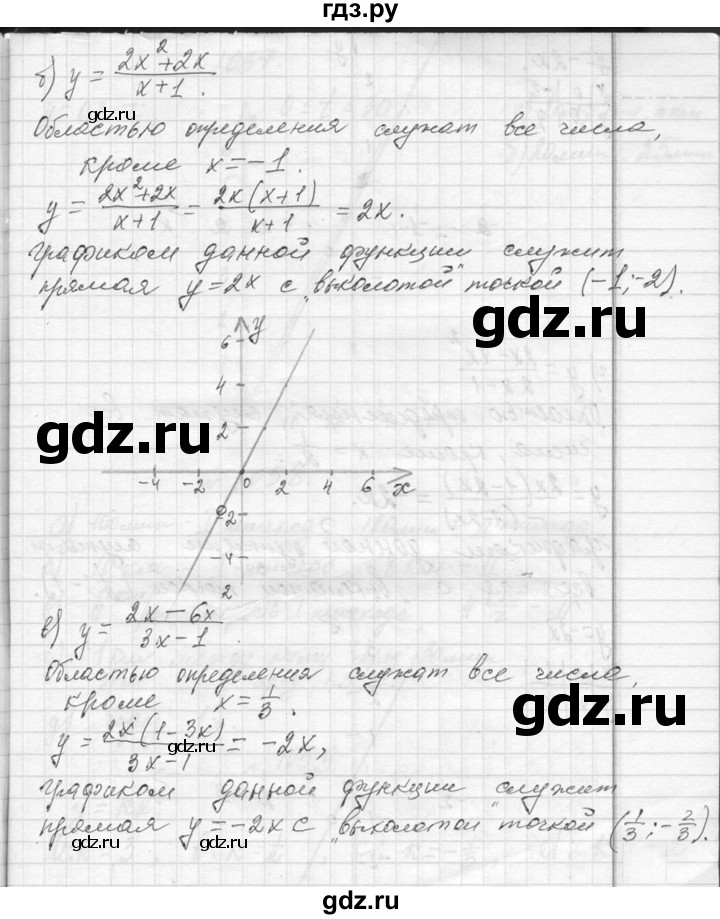 гдз.ру
б) y = (2x² + 2x)/(x + 1).
gdz.ru
Областью определения служат все числа,
кроме x = -1.
y = (2x² + 2x)/(x + 1) = 2x(x + 1)/(x + 1) = 2x.
графиком данной функции служит
прямая y = 2x с „выколотой" точкой (-1; -2).
gdz.ru
y
6
4
gdz.ru
2
gdz.ru
-4 -2 0 2 4 6 x
gdz.ru
-2
-4
в) y = (2x - 6x²)/(3x - 1).
gdz.ru
Областью определения служат все числа,
кроме x = 1/3.
gdz.ru
y = 2x(1 - 3x)/(3x - 1) = -2x,
gdz.ru
графиком данной функции служит
прямая y = -2x с „выколотой" точкой (1/3; -2/3).
gdz.ru
gdz.ru